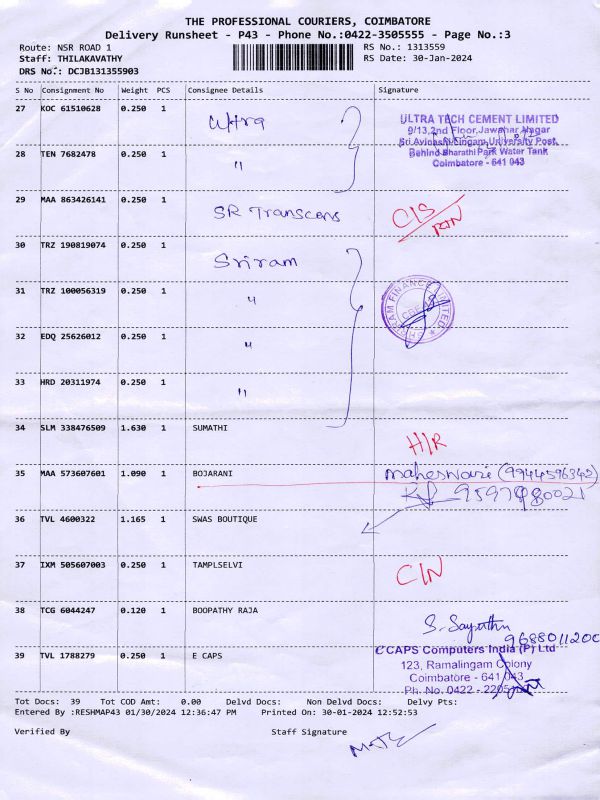 THE PROFESSIONAL COURIERS, COIMBATORE
Delivery Runsheet - P43 - Phone No.:0422-3505555 - Page No.:3
Route: NSR ROAD 1
RS No.: 1313559
Staff: THILAKAVATHY
RS Date: 30-Jan-2024
DRS No.: DCJB131355903
S No Consignment No Weight PCS Consignee Details Signature
27 KOC 61510628 0.250 1 Ultra
ULTRA TECH CEMENT LIMITED
9/13,2nd Floor,Jawahar Nagar
Sri Avinashilingam University Post,
Behind Bharathi Park Water Tank
Coimbatore - 641 043
28 TEN 7682478 0.250 1 "
29 MAA 863426141 0.250 1 SR Transcens
30 TRZ 190819074 0.250 1 Sriram
31 TRZ 100056319 0.250 1 "
32 EDQ 25626012 0.250 1 "
33 HRD 20311974 0.250 1 "
34 SLM 338476509 1.630 1 SUMATHI H/R
35 MAA 573607601 1.090 1 BOJARANI Maheswari (9944596342)
36 TVL 4600322 1.165 1 SWAS BOUTIQUE
37 IXM 505607003 0.250 1 TAMPLSELVI C/N
38 TCG 6044247 0.120 1 BOOPATHY RAJA
9688011200
39 TVL 1788279 0.250 1 E CAPS
eCAPS Computers India (P) Ltd
123, Ramalingam Colony
Coimbatore - 641 043
Ph. No. 0422 -
Tot Docs: 39 Tot COD Amt: 0.00 Delvd Docs: Non Delvd Docs: Delvy Pts:
Entered By :RESHMAP43 01/30/2024 12:36:47 PM Printed On: 30-01-2024 12:52:53
Verified By Staff Signature